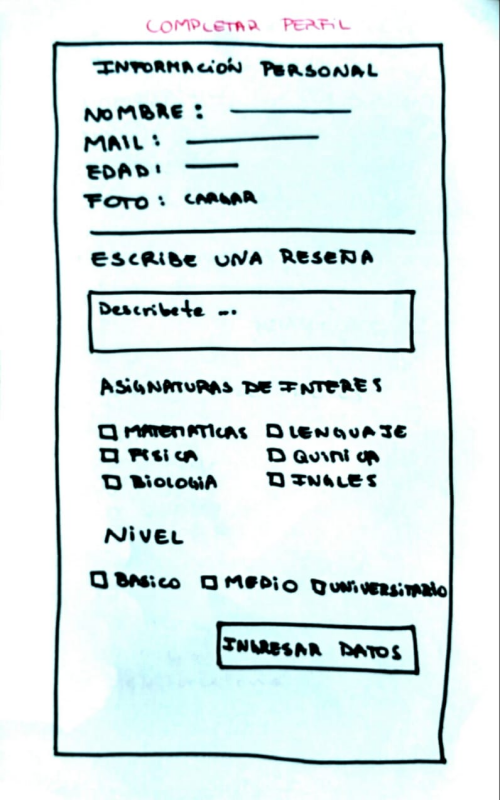 COMPLETAR PERFIL
INFORMACIÓN PERSONAL
NOMBRE:
MAIL:
EDAD:
FOTO: CARGAR
ESCRIBE UNA RESEÑA
Describete ...
ASIGNATURAS DE INTERES
MATEMATICAS LENGUAJE
FISICA QUIMICA
BIOLOGIA INGLES
NIVEL
BASICO MEDIO UNIVERSITARIO
INGRESAR DATOS